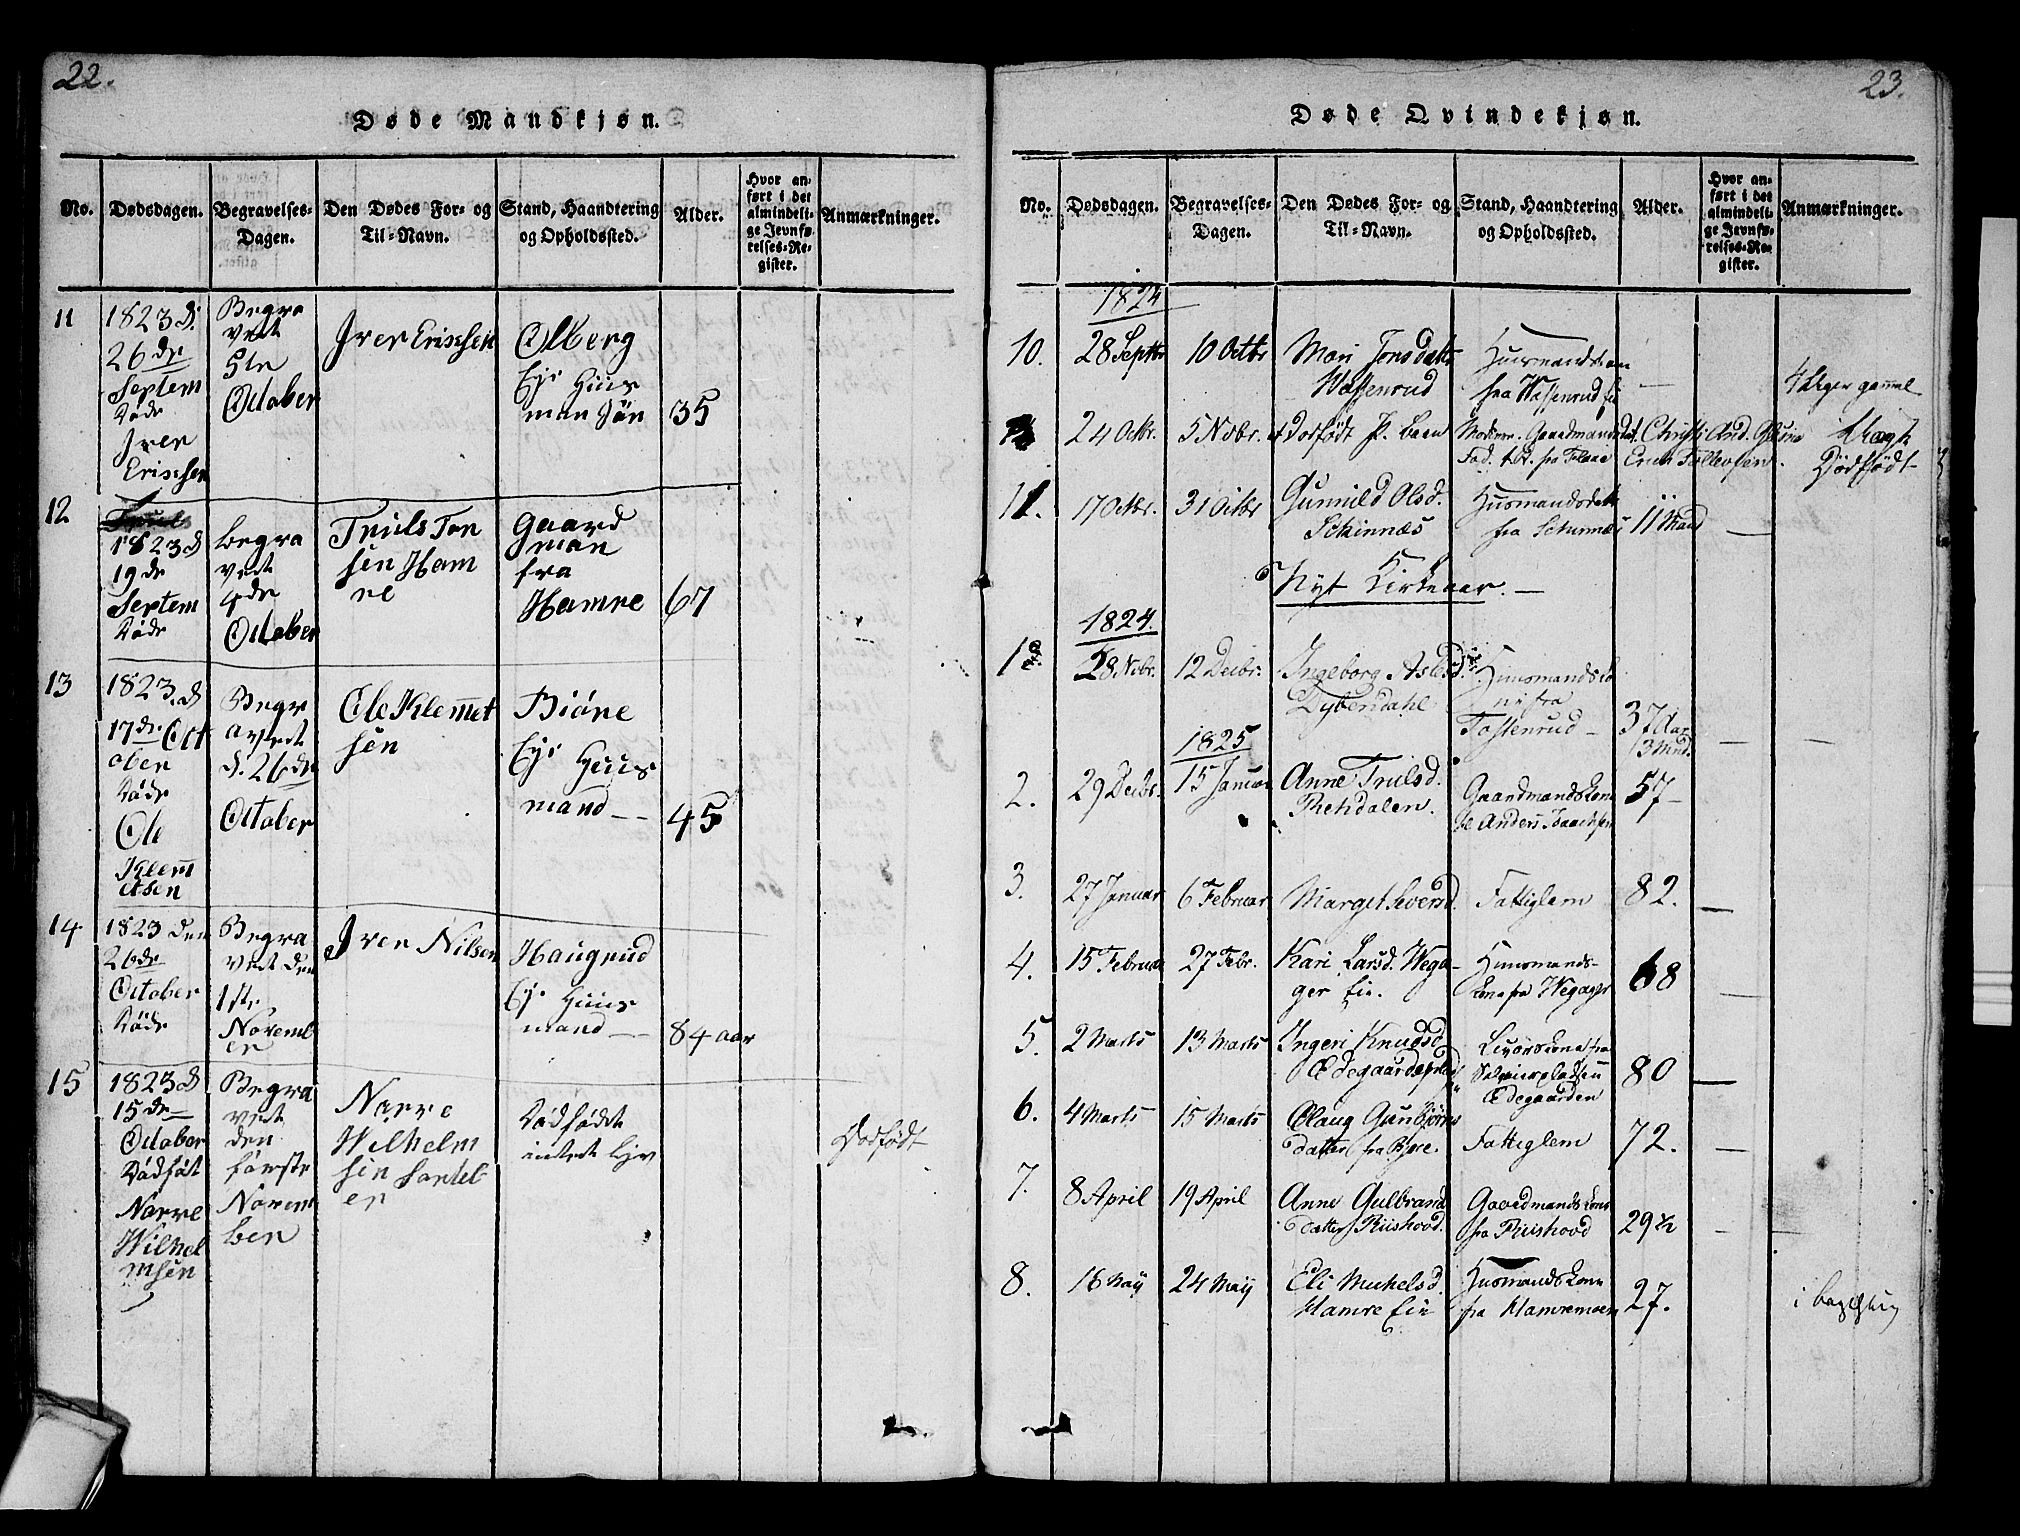 22.
Døde Mandkjøn.
No.
Dødsdagen.
Begravelses-
Dagen.
Den Dødes For- og
Til-Navn.
Stand, Haandtering
og Opholdssted.
Alder.
Hvor an-
ført i det
almindeli-
ge Jevnfø-
relses-Re-
gister.
Anmærkninger.
11
1823 d.
26de
Septem
døde
Iver
Erichsen
Begra
vedt
5te
October
Iver Erichsen
Olberg
Eje Huus
man Søn
35
12
1823 d
19de
Septem
døde
begra
vedt
4de
October
Truls Ton
sen Ham
re
Gaard
man
fra
Hamre
67
13
1823. d
17de Oct
ober
døde
Ole
Klemm
etsen
Begr
avedt
d. 26de
October
Ole Klemmet
sen
Biøre
Eje Huus
mand
45
14
1823 den
26de
October
døde
Begra
vedt den
1ste
Novemb
er
Iver Nilsen
Haugrud
Eje Huus
mand
84 aar
15
1823 d
15de
October
dødføt
Narve
Wilhel
msen
Begra
vedt
den
første
Novem
ber
Narve
Wilhelm
sen
er
dødfødt
intedt Liv
Dødfødt
23.
Døde Qvindekjøn.
No.
Dødsdagen.
Begravelses-
Dagen.
Den Dødes For- og
Til-Navn.
Stand, Haandtering
og Opholdssted.
Alder.
Hvor an-
ført i det
almindeli-
ge Jevnfø-
relses-Re-
gister.
Anmærkninger.
1824
10.
28 Septbr
10 Octbr
Mari Jonsdatt
Wassenrud
fra Wassenrud Eie
4 Uger gammel
24 Octbr.
5 Novbr.
et Dødfødt P. Barn
Moderen. Gaardmandsdat. Christi And.
Fad. fra Flaae Erich Tollevsen.
Dödfödt
11.
17 Octbr.
31 Octbr
Gunnild Olsd.
Schinnæs
Husmandsdatt
fra Schinnæs
11 Maand
Nyt Kirkeaar.
1824.
1
28 Nvbr.
12 Decbr.
Ingeborg Aslesd.
Dyberdahl
Huusmandsko
ne fra
Tostenrud
37 Aar
3 Mnd.
1825
2.
29 Decbr.
15 Januar
Anne Trulsd.
Rehdalen.
Gaardmandskone
Anders Isaachsen
57
3.
27 Januar
6 Februar
Marget Iversd.
Fattiglem
82.
4.
15 Februar
27 Febr.
Kari Larsd. Wega-
ger Eie.
Huusmands-
kone fra Wegager
68
5.
2 Marts
13 Marts
Ingeri Knudsd.
Ødegaardspladsen
Solvierpladsen
Ødegaarden
80
6.
4 Marts
15 Marts
Olaug Gunbjørns
datter fra Bjøre.
Fattiglem
72.
7.
8 April
19 April
Anne Gulbrands
datter Riishovd.
Gaardmandskone
fra Riishovd
29 ½
8.
16 Maij
24 Maij
Eli Michelsd.
Hamre Eie
Husmandskone
fra Hamremoen
27.
i barselseng